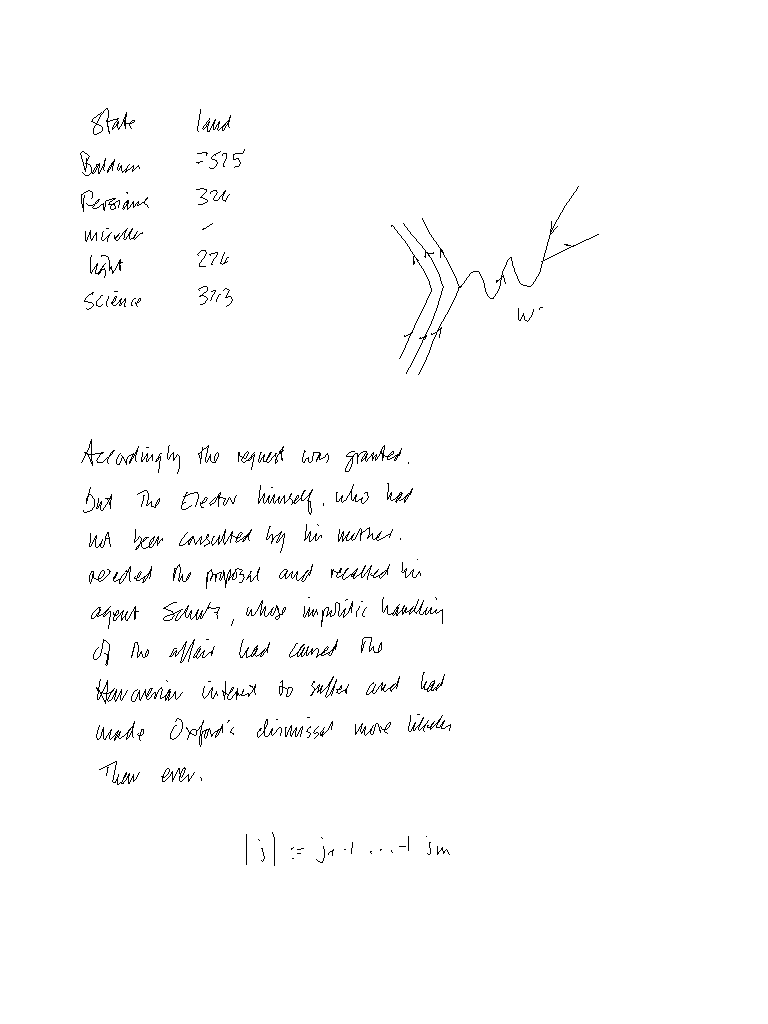 State land
Baldwin 7525
Persians 324
-
light 224
Science 3213
W⁻
Accordingly the request was granted.
But The Elector himself, who had
not been consulted by his mother.
rejected the proposal and recalled his
agent Schutz, whose impolitic handling
of the affair had caused the
Hanoverian interest to suffer and had
made Oxford's dismissal more likely
Than ever.
|j| := j₁ + ... + jm